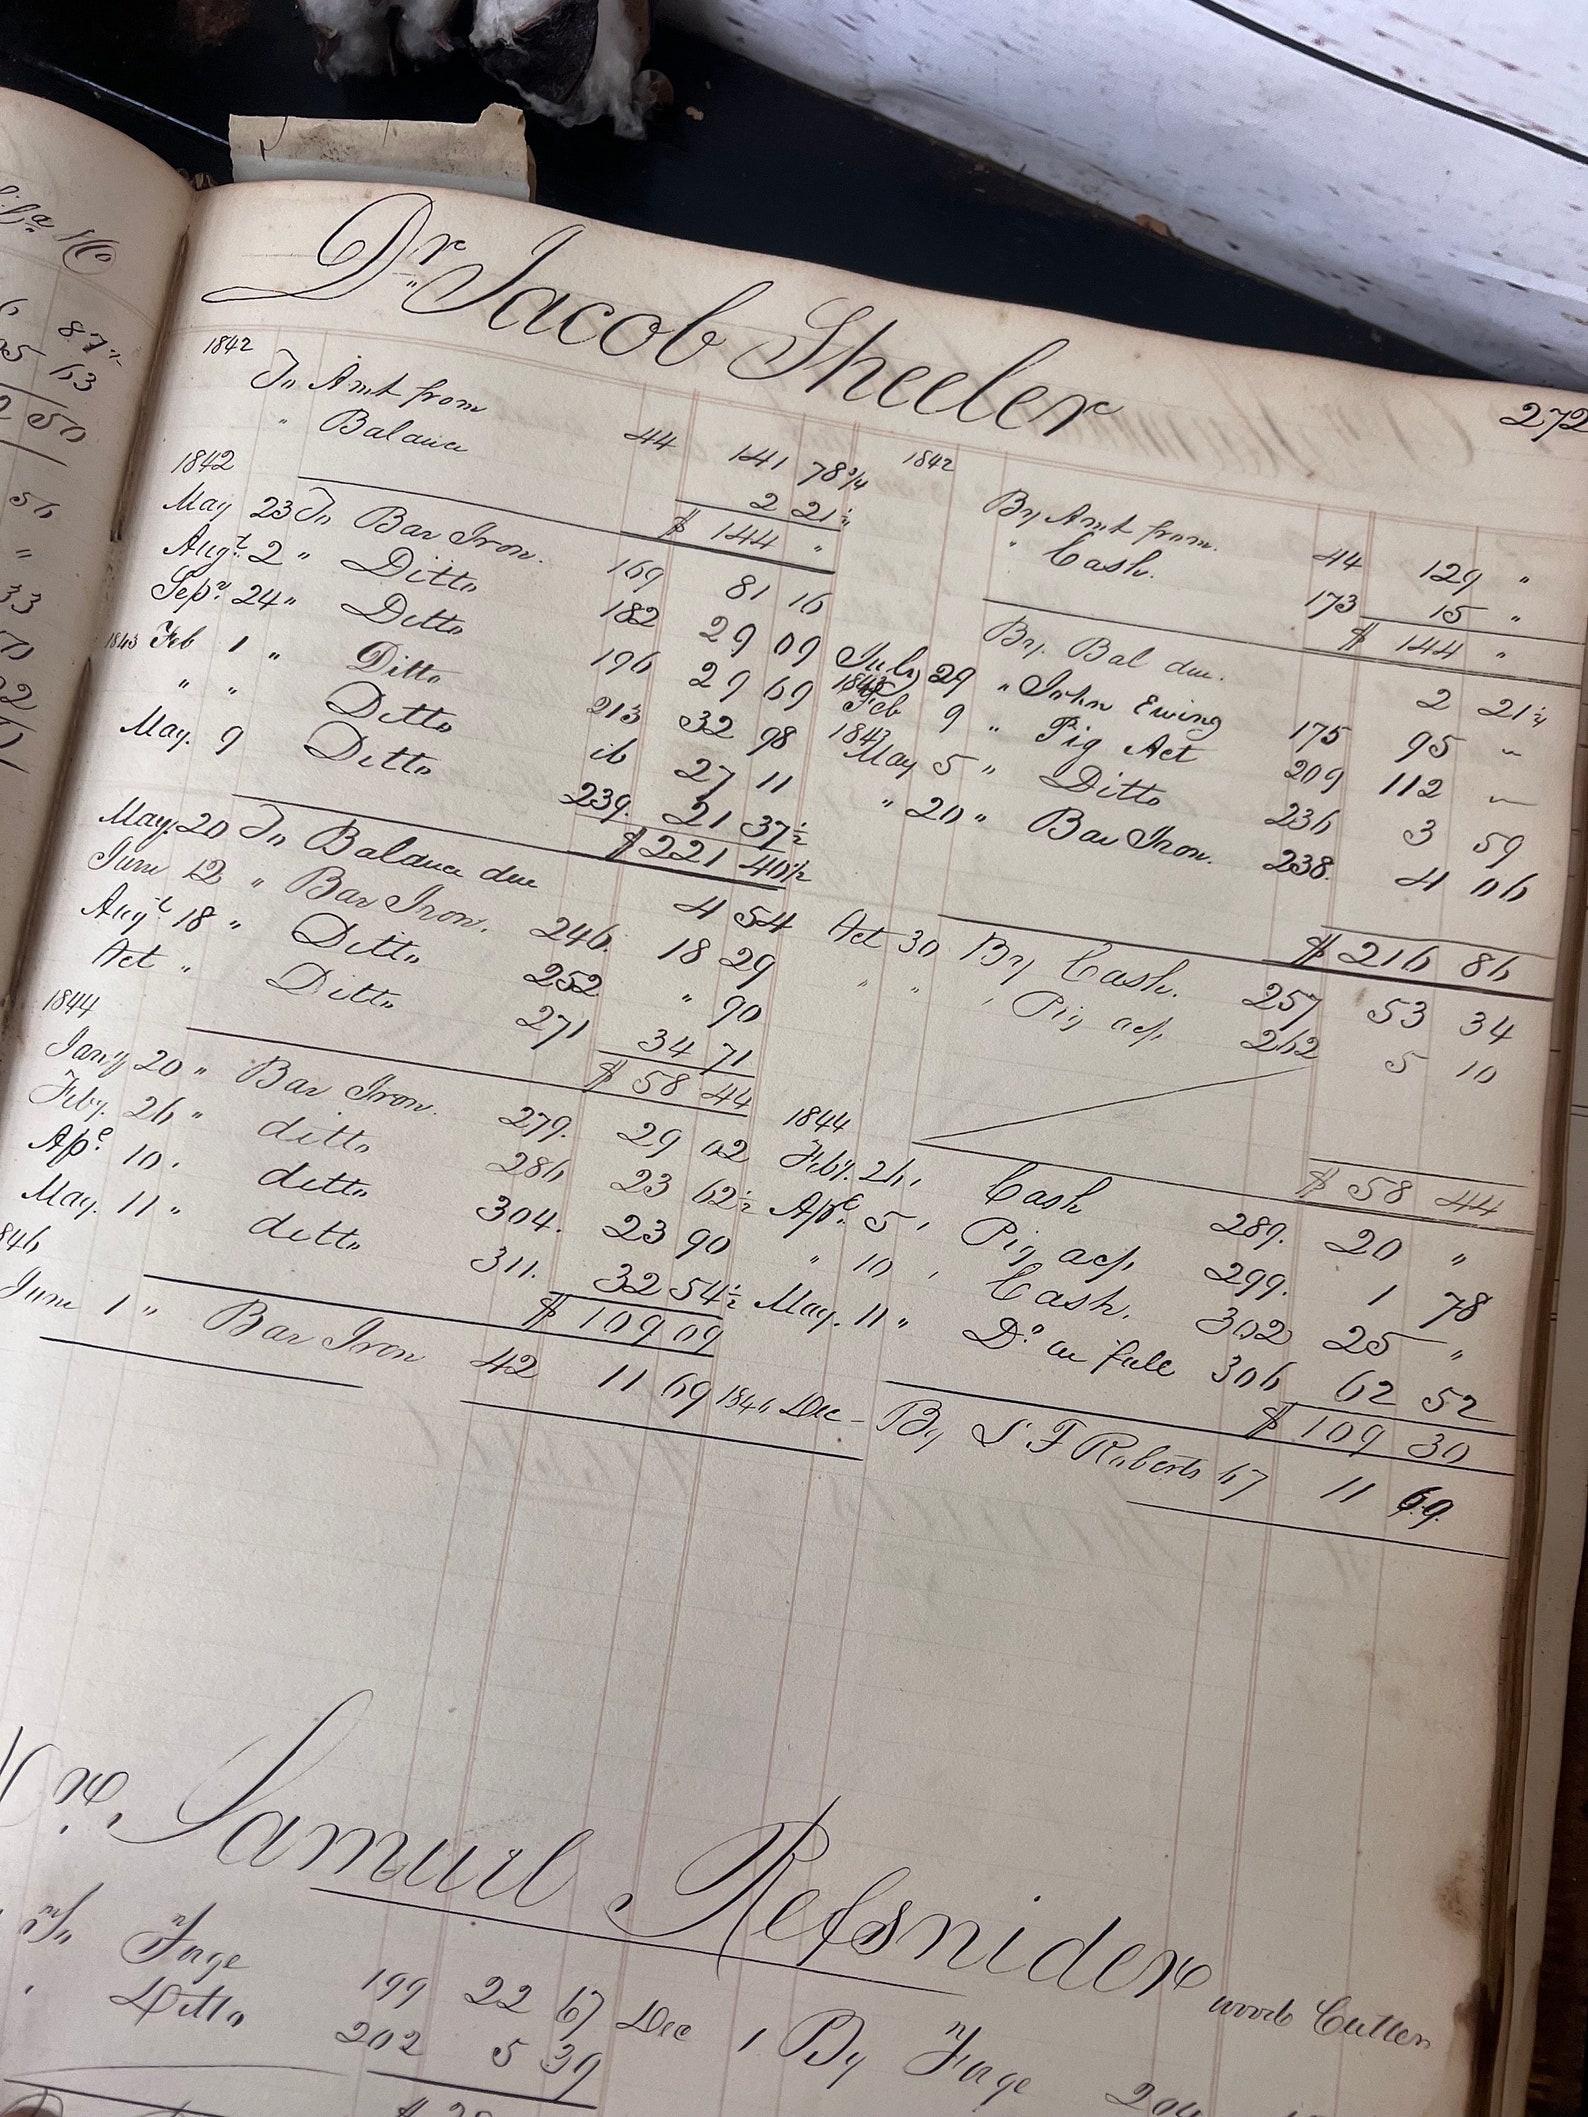 Dr Jacob Sheeler
272
1842
To Amt from 44 141 78 3/4
" Balance 2 21 1/4
$ 144 "
1842
May 23 To Bar Iron. 169 81 16
Augt. 2 " Ditto 182 29 09
Sepr. 24 " Ditto 196 29 69
1843 Feb 1 " Ditto 213 32 98
" " Ditto ib 27 11
May. 9 Ditto 239. 21 37 1/2
$ 221 40 1/2
May. 20 To Balance due 4 54
June 12 " Bar Iron. 246. 18 29
Augt 18 " Ditto 252 " 90
Oct " Ditto 271 34 71
$ 58 44
1844
Jany 20 " Bar Iron. 279. 29 02
Feby. 26 " ditto 286 23 62 1/2
Apl. 10. ditto 304. 23 90
May. 11 " ditto 311. 32 54 1/2
$ 109 09
1846
June 1 " Bar Iron 42 11 69
1842
By Amt from. 44 129 "
" Cash. 173 15 "
$ 144 "
By. Bal due. 2 21 1/4
July 29 " John Ewing 175 95 "
1843 Feb 9 " Pig Act 209 112 "
1843 May 5 " Ditto 236 3 59
" 20 " Bar Iron. 238. 4 06
$ 216 86
Oct 30 By Cash. 257 53 34
" " ' Pig acp 262 5 10
$ 58 44
1844
Feby. 26, Cash 289. 20 "
Apl. 5 ' Pig acp 299. 1 78
" 10 ' Cash. 302 25 "
May. 11 " Do in full 306 62 52
$ 109 30
1846 Dec - By S F Roberts 67 11 69.
Samuel Refsnider wood Cutter
To Forge 199 22 67
' Ditto 202 5 39
Dec 1 By Forge 204